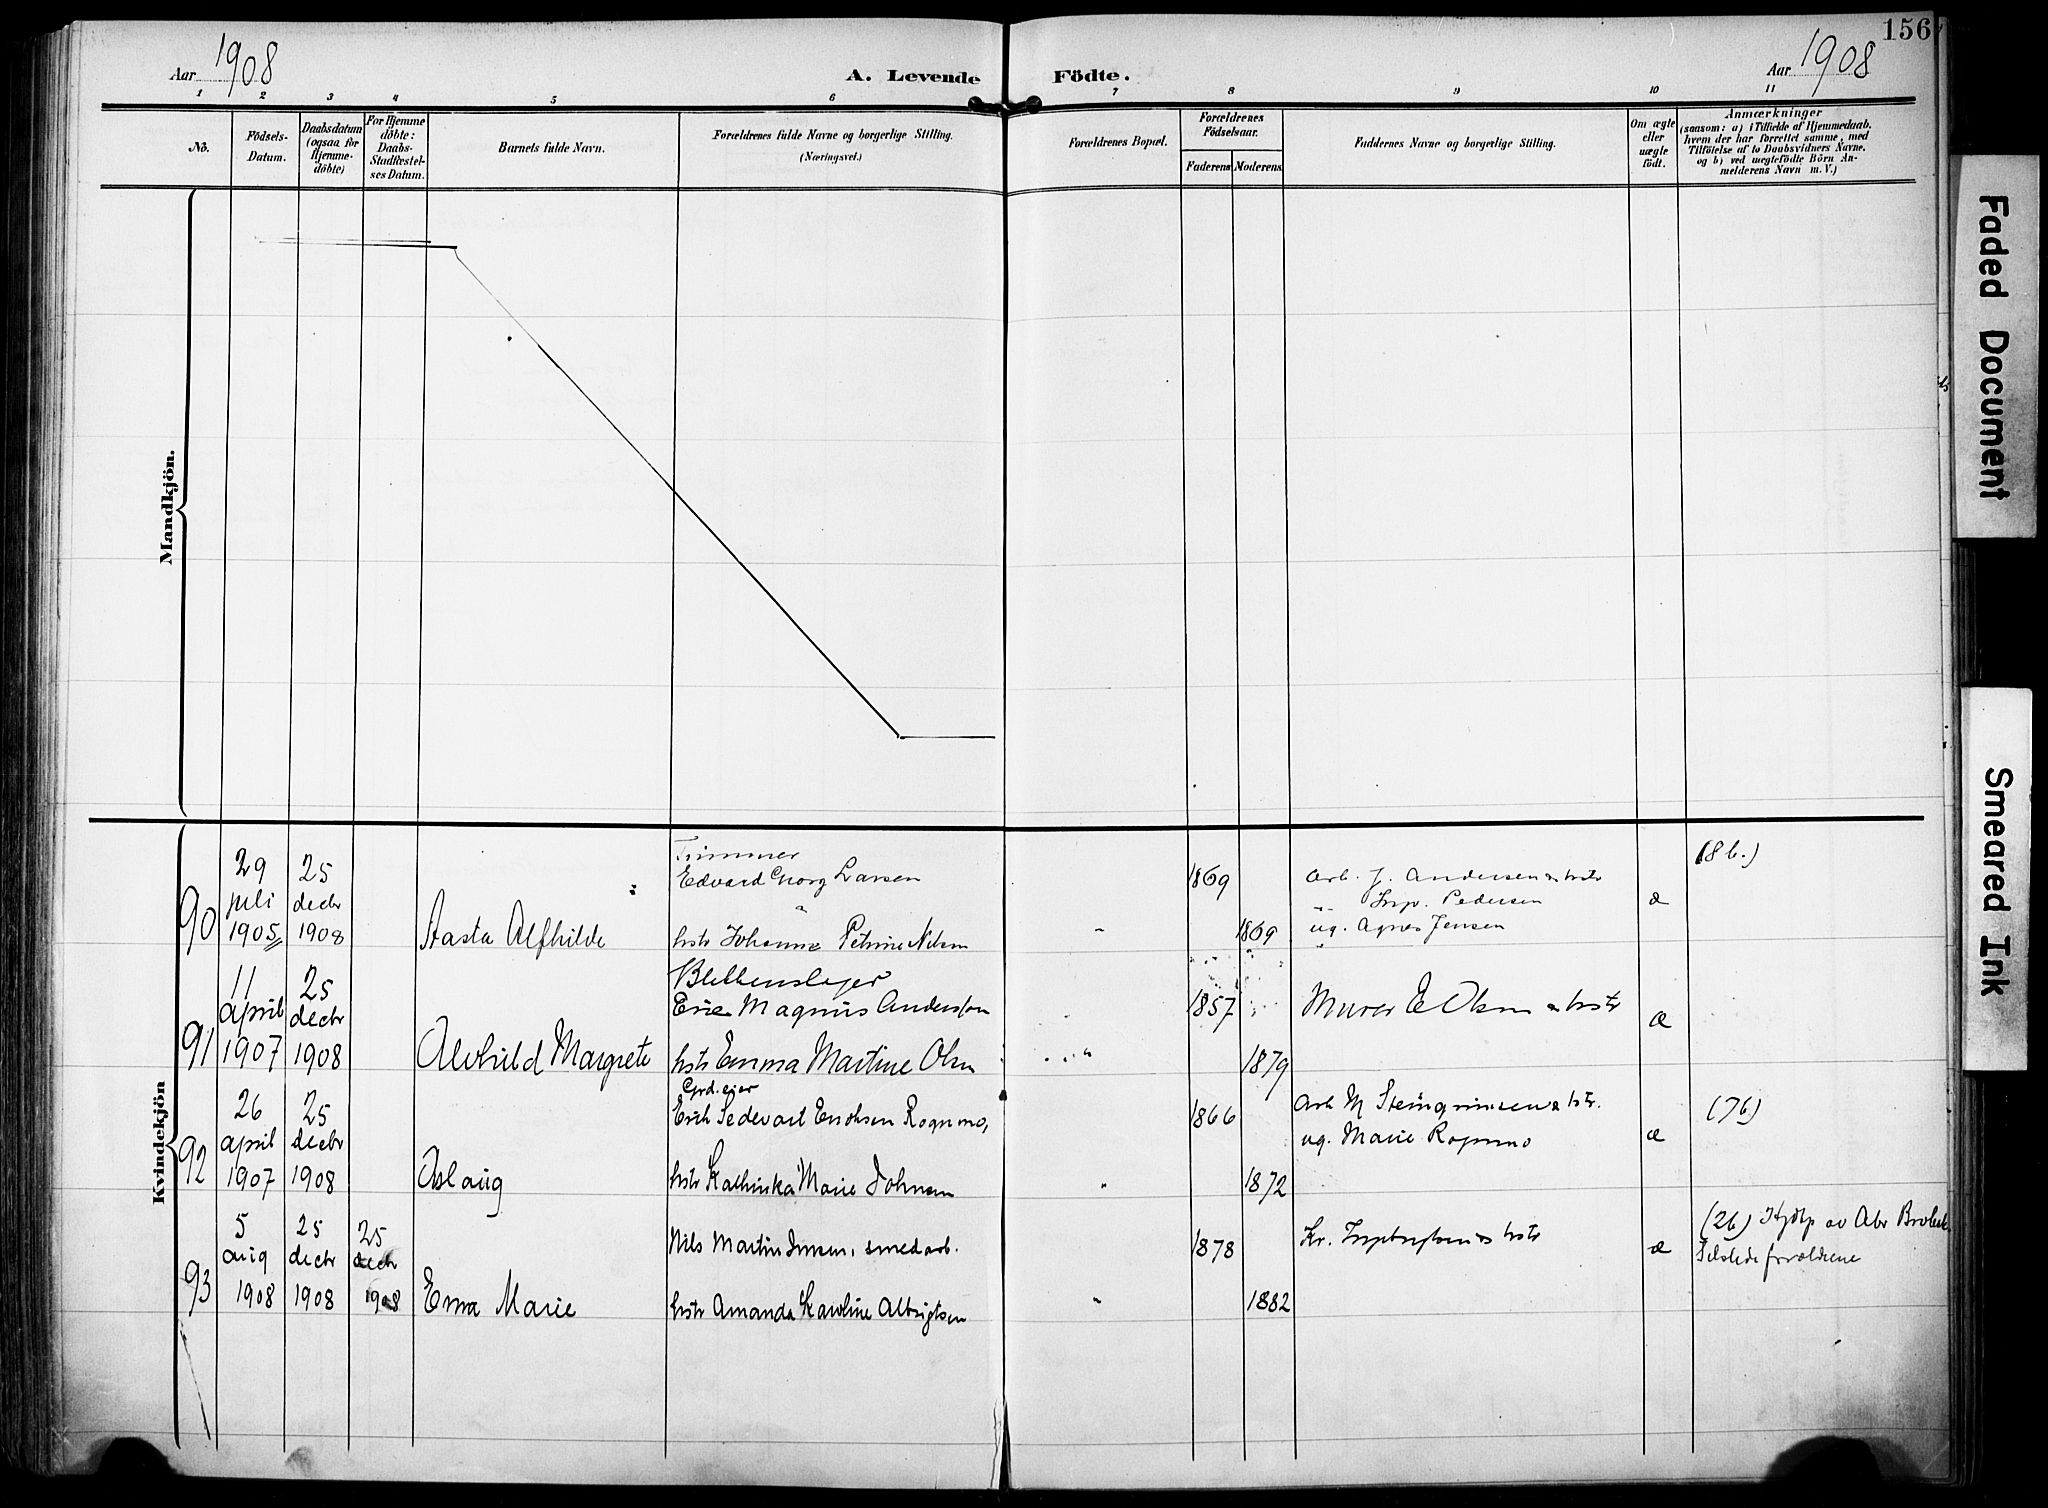 156
Aar 1908
A. Levende Födte.
Aar 1908
1 2 3 4 5 6 7 8 9 10 11
No.
Födsels-
Datum.
Daabsdatum
(ogsaa for
Hjemme-
döbte)
For Hjemme
döbte:
Daabs-
Stadfæstel-
ses Datum.
Barnets fulde Navn.
Forældrenes fulde Navne og borgerlige Stilling.
(Næringsvei.)
Forældrenes Bopæl.
Forældrenes
Födselsaar.
Faderens
Moderens
Faddernes Navne og borgerlige Stilling.
Om ægte
eller
uægte
födt.
Anmærkninger
(saasom: a) i Tilfælde af Hjemmedaab,
hvem der har forrettet samme, med
Tilföielse af to Daabsvidners Navne,
og b) ved uegtefödte Börn An-
melderens Navn m. V.)
Mandkjön.
Kvindekjön
90
29
juli
1905
25
decbr
1908
Aasta Alfhilde
Trimmer
Edvard Georg Larsen
hstr Johanna Petrine Nilsen
"
1869
1869
Arb. J. Andersen & hstr
" Inp. Pedersen
ug. Agnes Jensen
æ
(8b.)
91
11
april
1907
25
decbr
1908
Alvhild Margrete
Blikkenslager
Eric Magnus Andersson
hstr Emma Martine Olsen
"
1857
1879
Murer E Olsen & hstr
æ
92
26
april
1907
25
decbr
1908
Aslaug
Grd.eier
Erik Sedevart Eriksen Rognmo,
hstr Kathinka Marie Johnsen
"
1866
1872
Arb M Steingrimsen & hstr.
ug. Marie Rognmo
æ
(7b)
93
5
aug
1908
25
decbr
1908
25
decbr
1908
Erna Marie
Nils Martin Jensen, smedarb.
hstr Amanda Karoline Albrigtsen
"
1878
1882
Kr. Ingebrigtsen & hstr
æ
(2b) Hjdbp av Abr
Tilstede forældrene
Faded Document
Smeared Ink